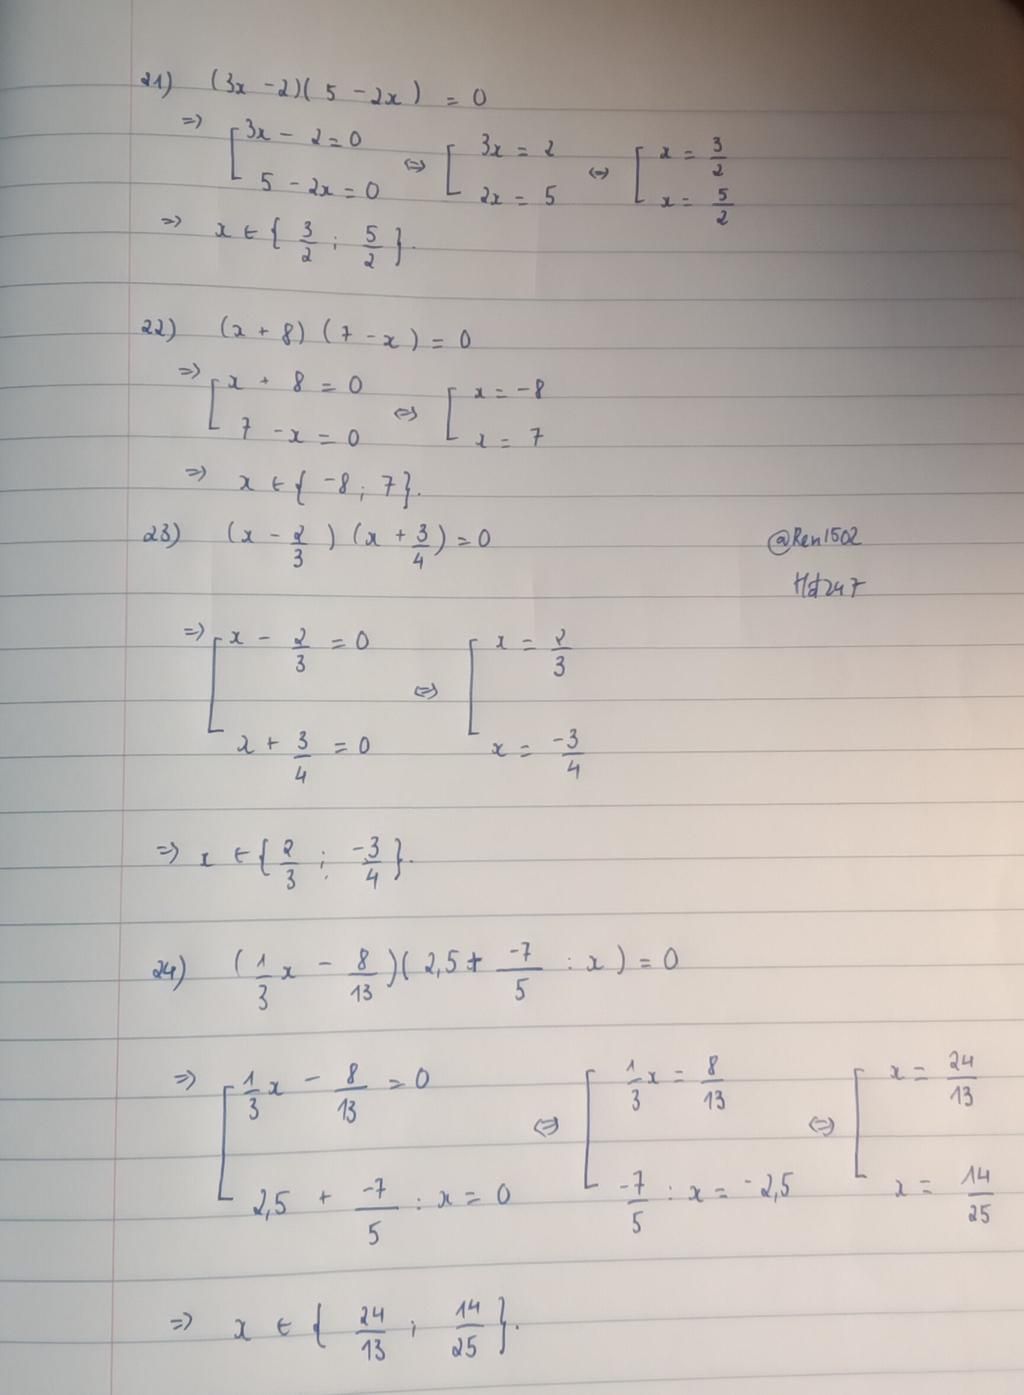 21) (3x - 2)(5 - 2x) = 0
=> [ 3x - 2 = 0 ; 5 - 2x = 0 <=> [ 3x = 2 ; 2x = 5 <=> [ x = 3/2 ; x = 5/2
=> x ∈ { 3/2 ; 5/2 }.
22) (x + 8) (7 - x) = 0
=> [ x + 8 = 0 ; 7 - x = 0 <=> [ x = -8 ; x = 7
=> x ∈ { -8 ; 7 }.
23) (x - 2/3) (x + 3/4) = 0
@Ren1502
Hd247
=> [ x - 2/3 = 0 ; x + 3/4 = 0 <=> [ x = 2/3 ; x = -3/4
=> x ∈ { 2/3 ; -3/4 }.
24) (1/3 x - 8/13)(2,5 + -7/5 : x) = 0
=> [ 1/3 x - 8/13 = 0 ; 2,5 + -7/5 : x = 0 <=> [ 1/3 x = 8/13 ; -7/5 : x = -2,5 <=> [ x = 24/13 ; x = 14/25
=> x ∈ { 24/13 ; 14/25 }.